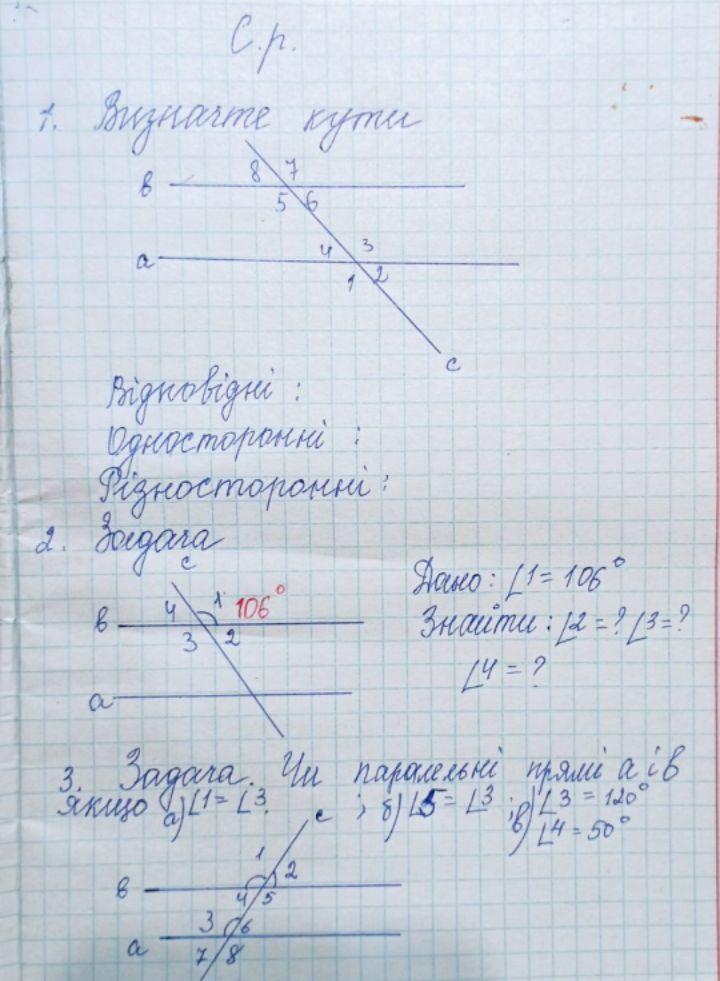 С.р.
1. Визначте кути
8 7
в
5 6
4 3
а
1 2
с
Відповідні :
Односторонні :
Різносторонні :
2. Задача
с
4 1 106°
в
3 2
а
Дано: ∠1 = 106°
Знайти: ∠2 = ? ∠3 = ?
∠4 = ?
3. Задача. Чи паралельні прямі а і в
якщо а) ∠1 = ∠3 ; б) ∠5 = ∠3 ; в) ∠3 = 120°
∠4 = 50°
с
1 2
в
4 5
3 6
а
7 8